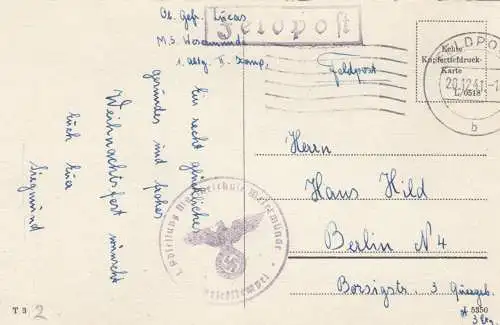 Ob. Gefr. Lucas
M.S. Wesermünde
1. Abtlg. II. Komp.
Feldpost
Feldpost
Ein recht glückliches
gesundes und frohes
Weihnachtsfest wünscht
Euch Euer
Siegmund
Echte
Kupfertiefdruck-
Karte
L/0518
FELDPOST
20.12.41
b
Herrn
Hans Hild
Berlin N4
Borsigstr. 3 Quergeb.
3 Trp.
1. Abteilung Marineschule Wesermünde
T 3
2
5350